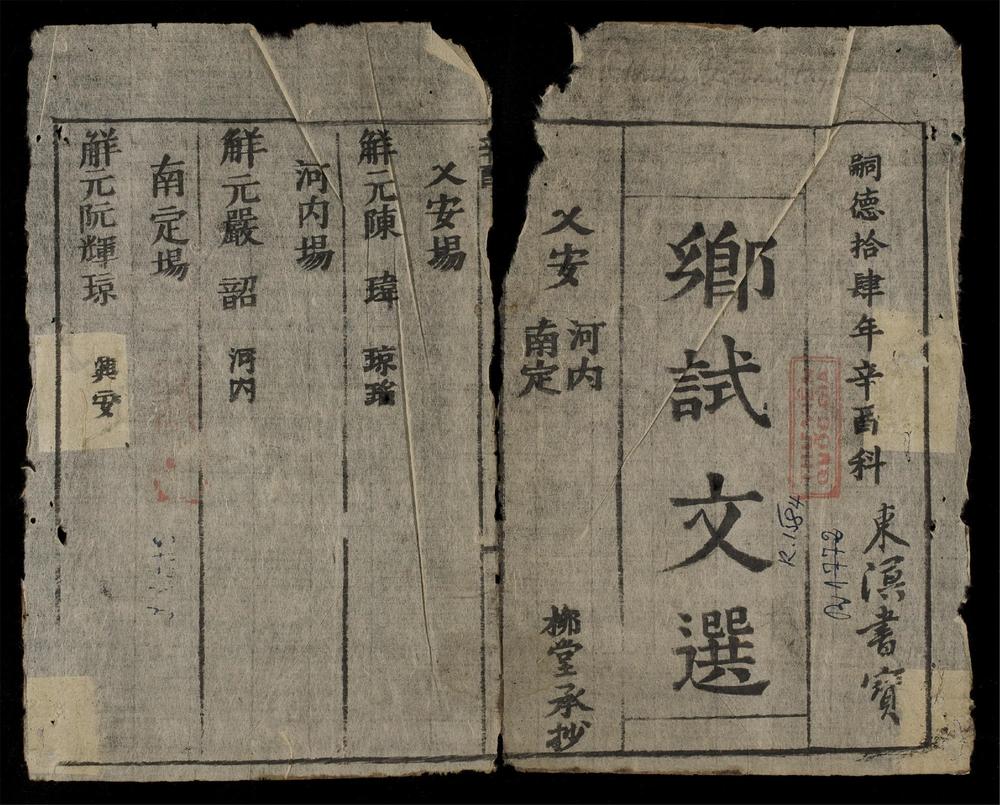 嗣德拾肆年辛酉科
東溟書寶
鄉試文選
乂安
河内
南定
柳堂承抄
R.1584
1772
辛酉
乂安場
解元陳瑋
瓊瑠
河内場
解元嚴韶
河内
南定場
解元阮輝琼
興安